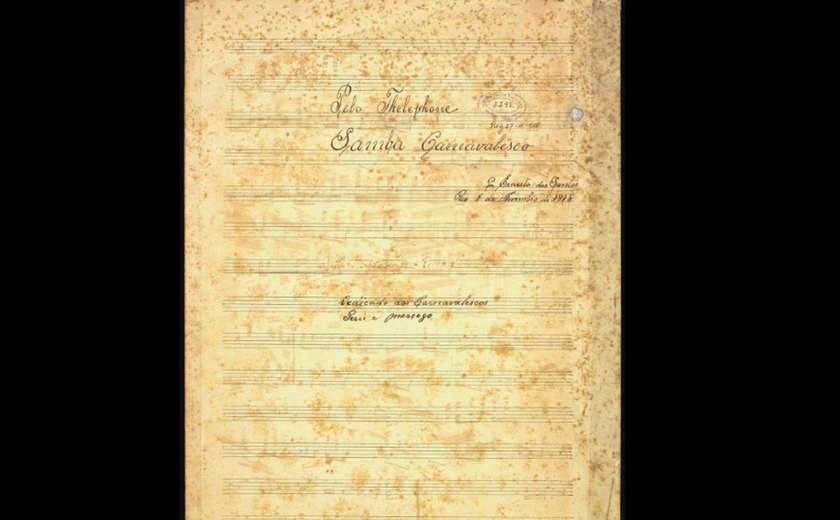 Pelo Thelephone
3.295
Samba Carnavalesco
Por Ernesto dos Santos
Rio de Novembro de
Dedicado aos Carnavalescos
Perú e morcego